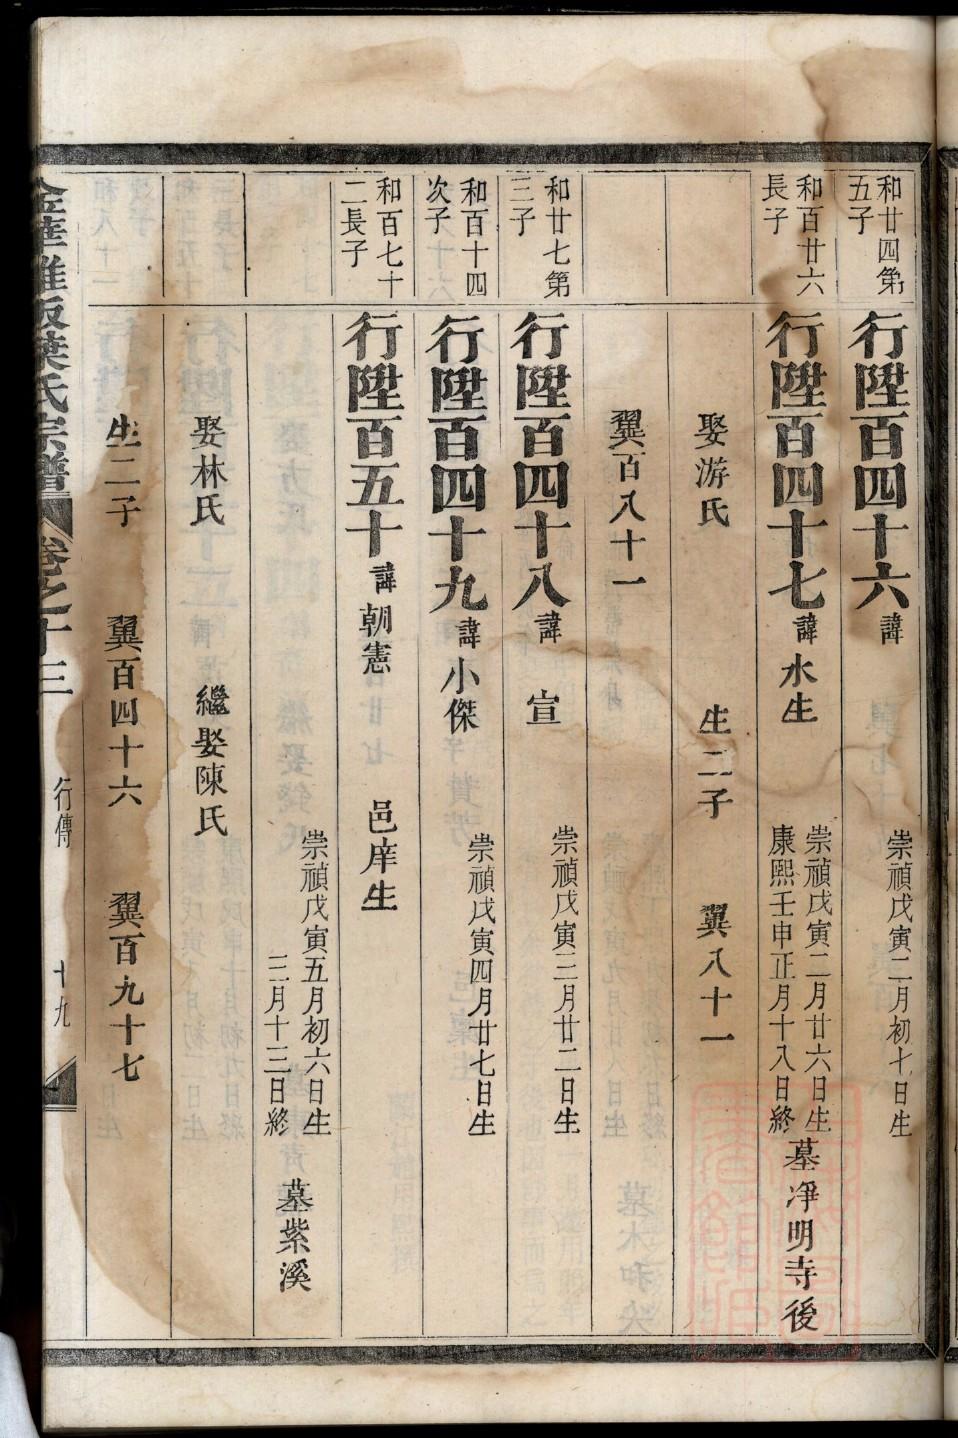 和廿四第
五子
行陞百四十六 諱
崇禎戊寅二月初七日生
和百廿六
長子
行陞百四十七 諱水生
崇禎戊寅二月廿六日生
康熙壬申正月十八日終
墓凈明寺後
娶游氏 生二子 翼八十一
翼百八十一
和廿七第
三子
行陞百四十八 諱宣
崇禎戊寅三月廿二日生
和百十四
次子
行陞百四十九 諱小傑
崇禎戊寅四月廿七日生
和百七十
二長子
行陞百五十 諱朝憲 邑庠生
崇禎戊寅五月初六日生
三月十三日終
墓紫溪
娶林氏 繼娶陳氏
生二子 翼百四十六 翼百九十七
金華雅畈葉氏宗譜 卷之十三 行傳 十九